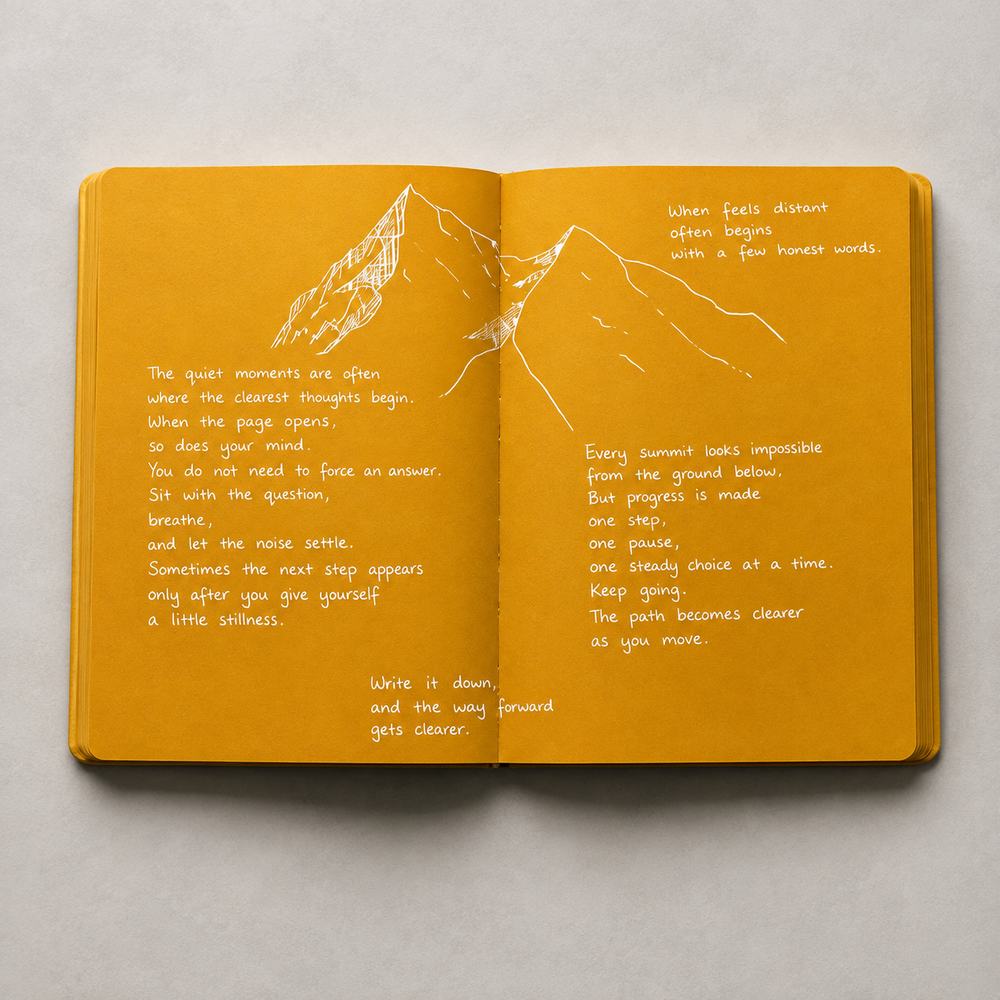 The quiet moments are often
where the clearest thoughts begin.
When the page opens,
so does your mind.
You do not need to force an answer.
Sit with the question,
breathe,
and let the noise settle.
Sometimes the next step appears
only after you give yourself
a little stillness.
Write it down,
and the way forward
gets clearer.
When feels distant
often begins
with a few honest words.
Every summit looks impossible
from the ground below.
But progress is made
one step,
one pause,
one steady choice at a time.
Keep going.
The path becomes clearer
as you move.